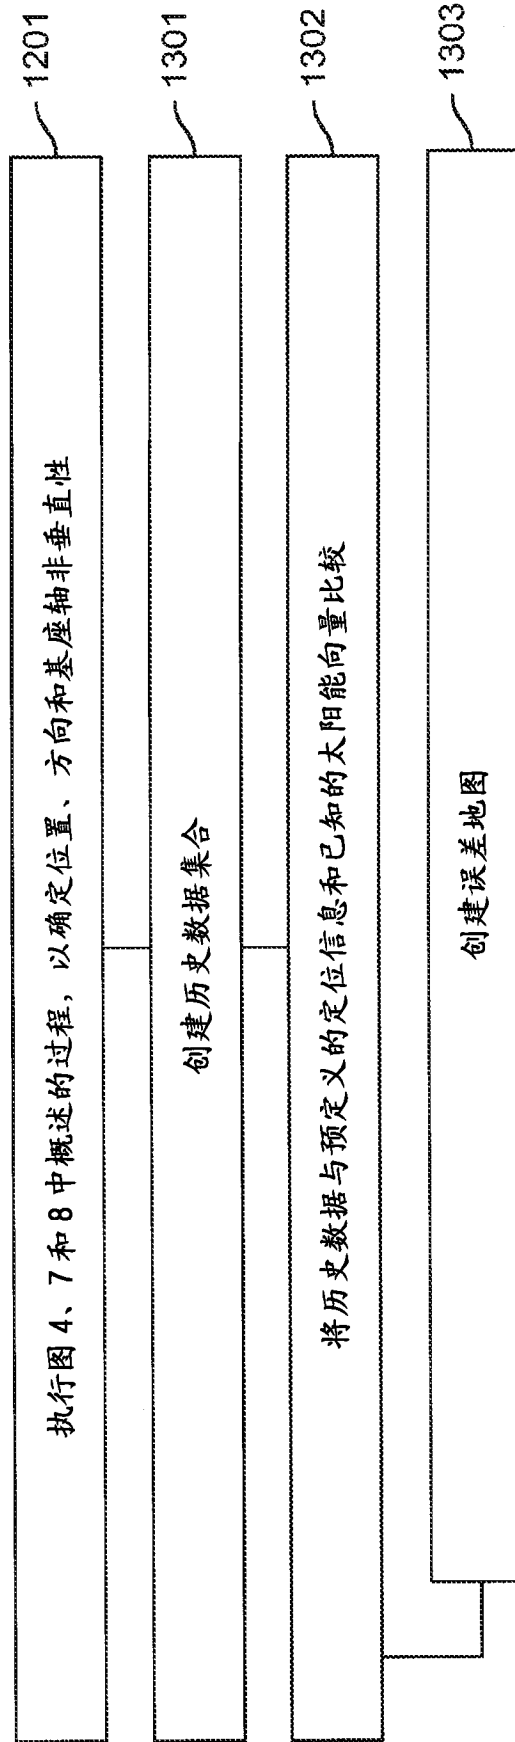 执行图 4、7 和 8 中概述的过程，以确定位置、方向和基座轴非垂直性
1201
创建历史数据集合
1301
将历史数据与预定义的定位信息和已知的太阳能向量比较
1302
创建误差地图
1303